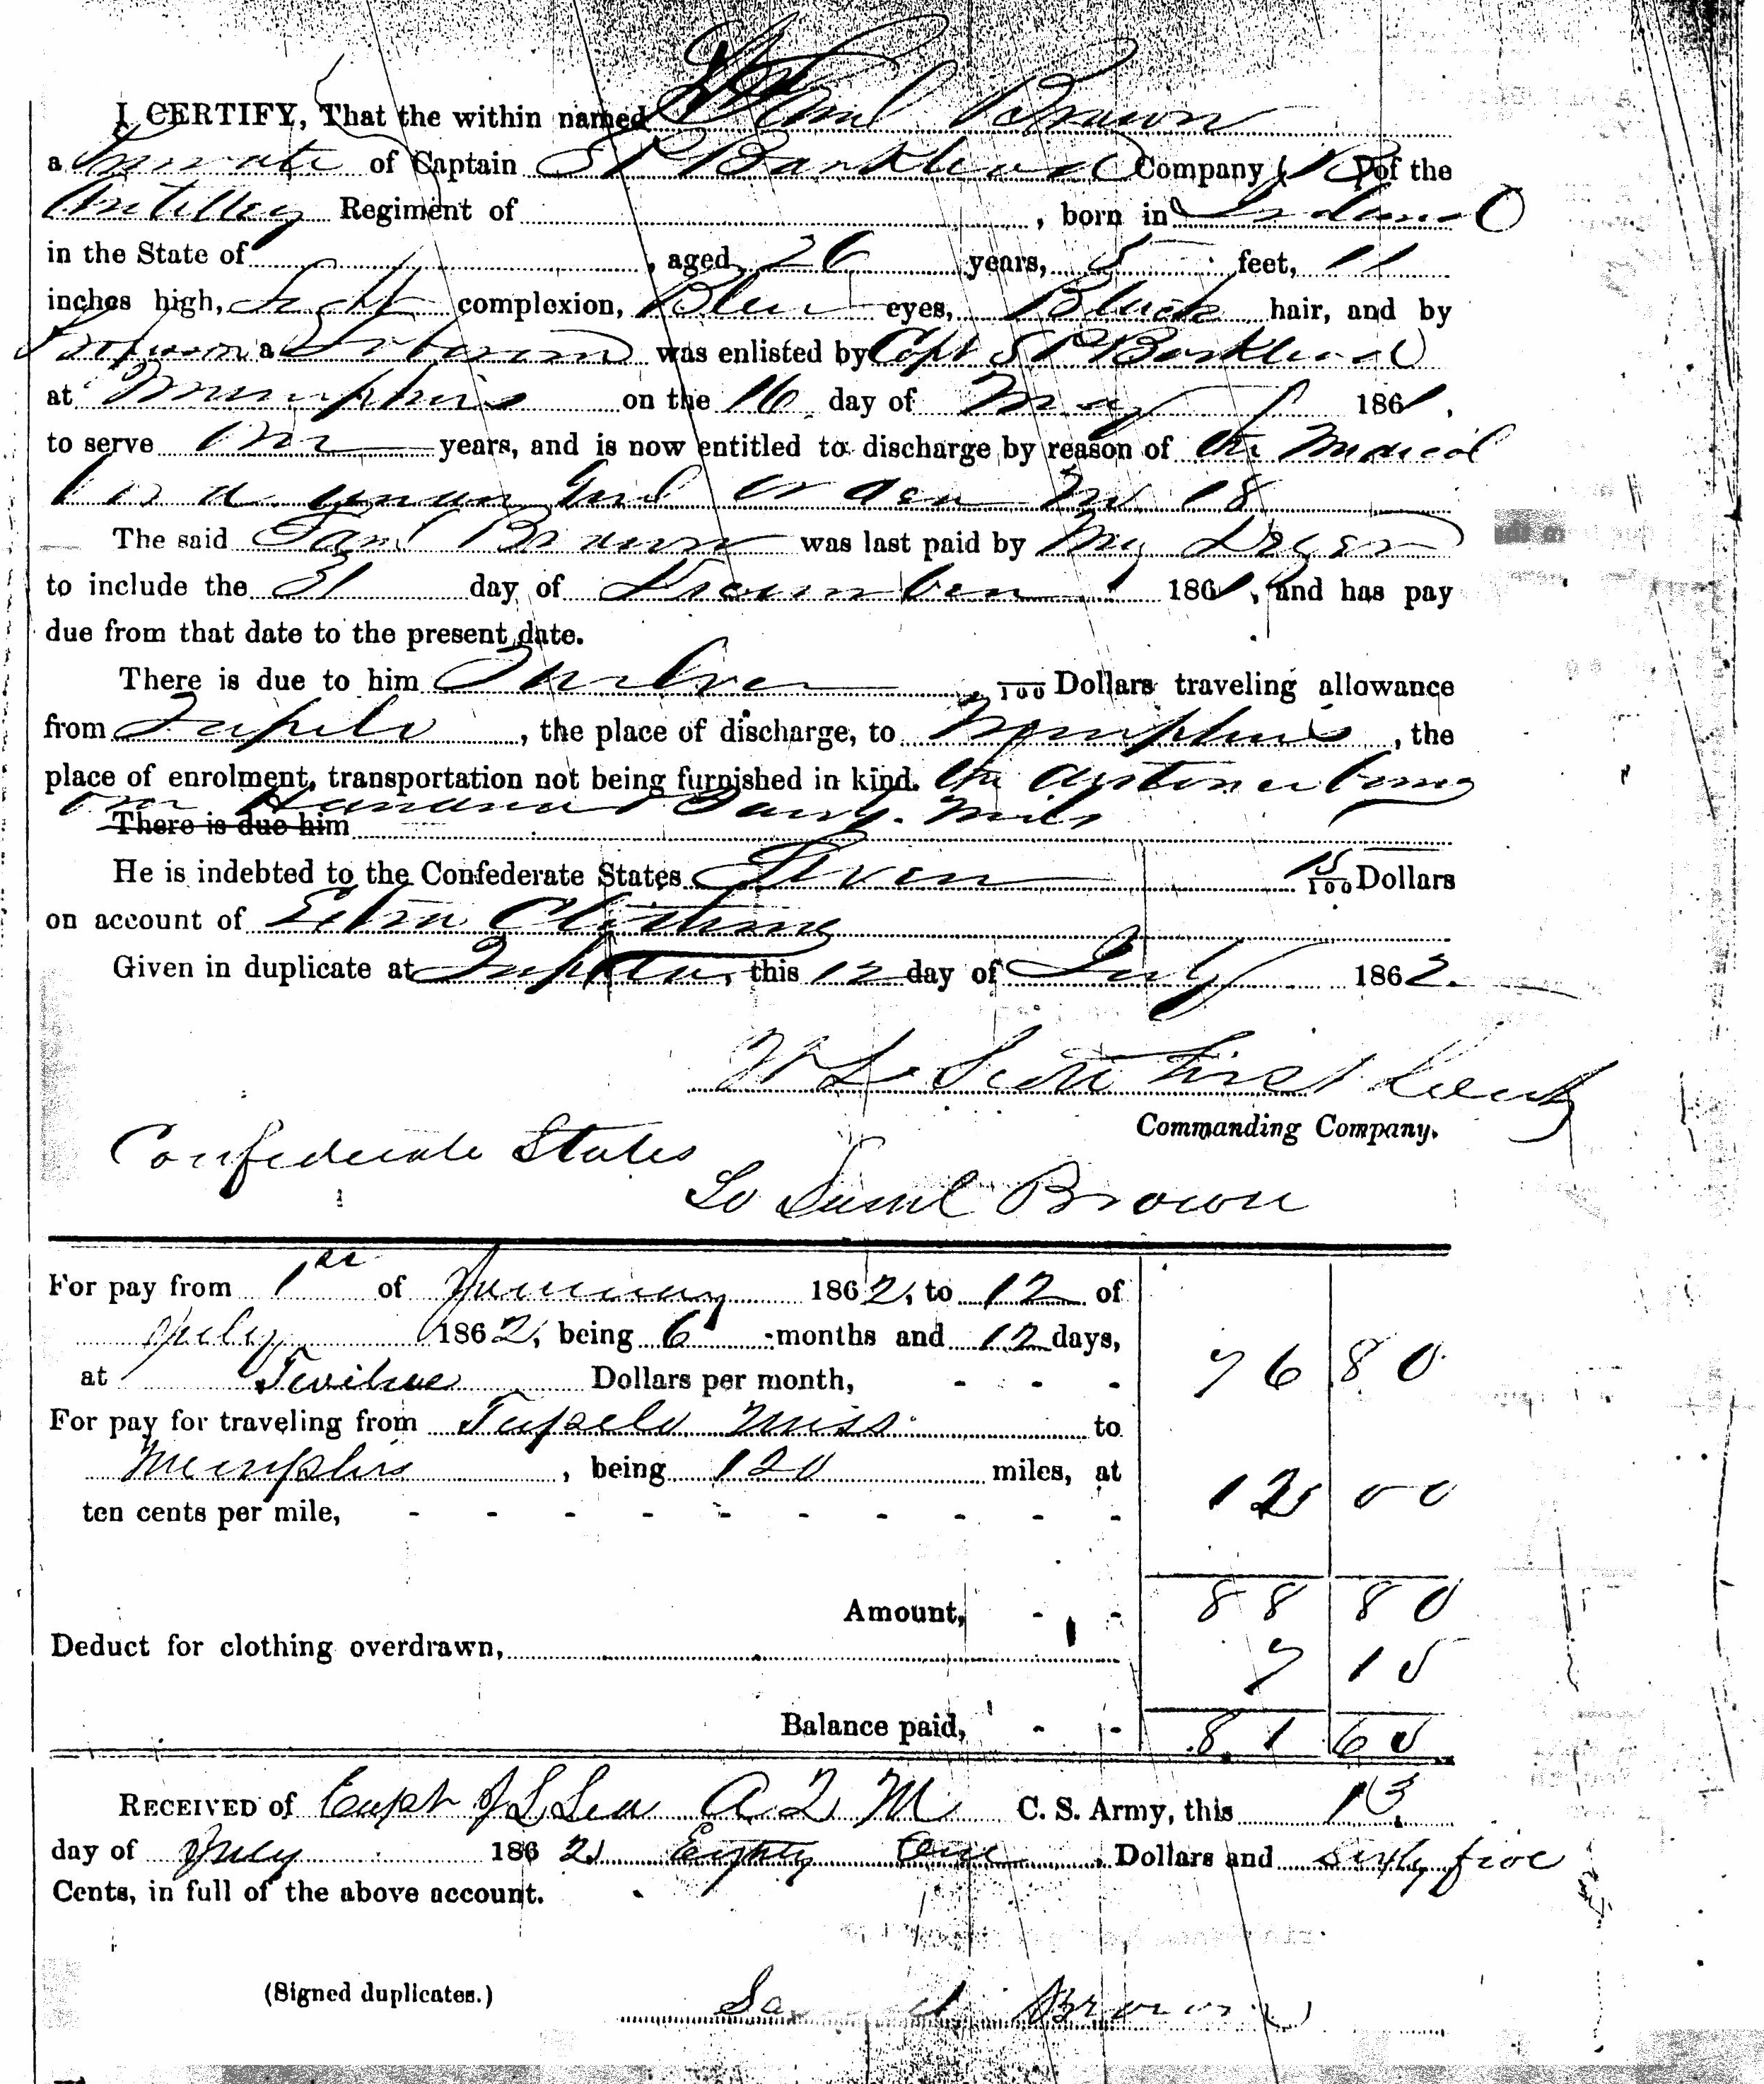 I CERTIFY, That the within named Saml Brown
a Private of Captain S P Bankhead Company (B) of the
Artillery Regiment of , born in Ireland
in the State of , aged 26 years, 5 feet, 11
inches high, Light complexion, Blue eyes, Black hair, and by
a was enlisted by Capt S P Bankhead
at Memphis on the 16 day of May 1861,
to serve one years, and is now entitled to discharge by reason of the
under Genl order No 18
The said Saml Brown was last paid by Maj
to include the 31 day of December 1861, and has pay
due from that date to the present date.
There is due to him Twelve 100 Dollars traveling allowance
from Tupelo , the place of discharge, to Memphis , the
place of enrolment, transportation not being furnished in kind. the distance being
one Hundred & Twenty Mils
There is due him
He is indebted to the Confederate States Seven 15/100 Dollars
on account of Extra Clothing
Given in duplicate at Tupelo, this 12 day of July 1862.
W L Scott First Lieut
Commanding Company.
Confederate States
To Saml Brown
For pay from 1st of January 1862, to 12 of
July 1862, being 6 months and 12 days,
at Twelve Dollars per month, - - - 76 80
For pay for traveling from Tupelo Miss to
Memphis , being 120 miles, at
ten cents per mile, - - - - - - - - - - 12 00
Amount, - - 88 80
Deduct for clothing overdrawn, 7 15
Balance paid, - - 81 65
RECEIVED of Capt A Q M C. S. Army, this 13
day of July 1862 Eighty One Dollars and sixty five
Cents, in full of the above account.
(Signed duplicates.) Samuel Brown